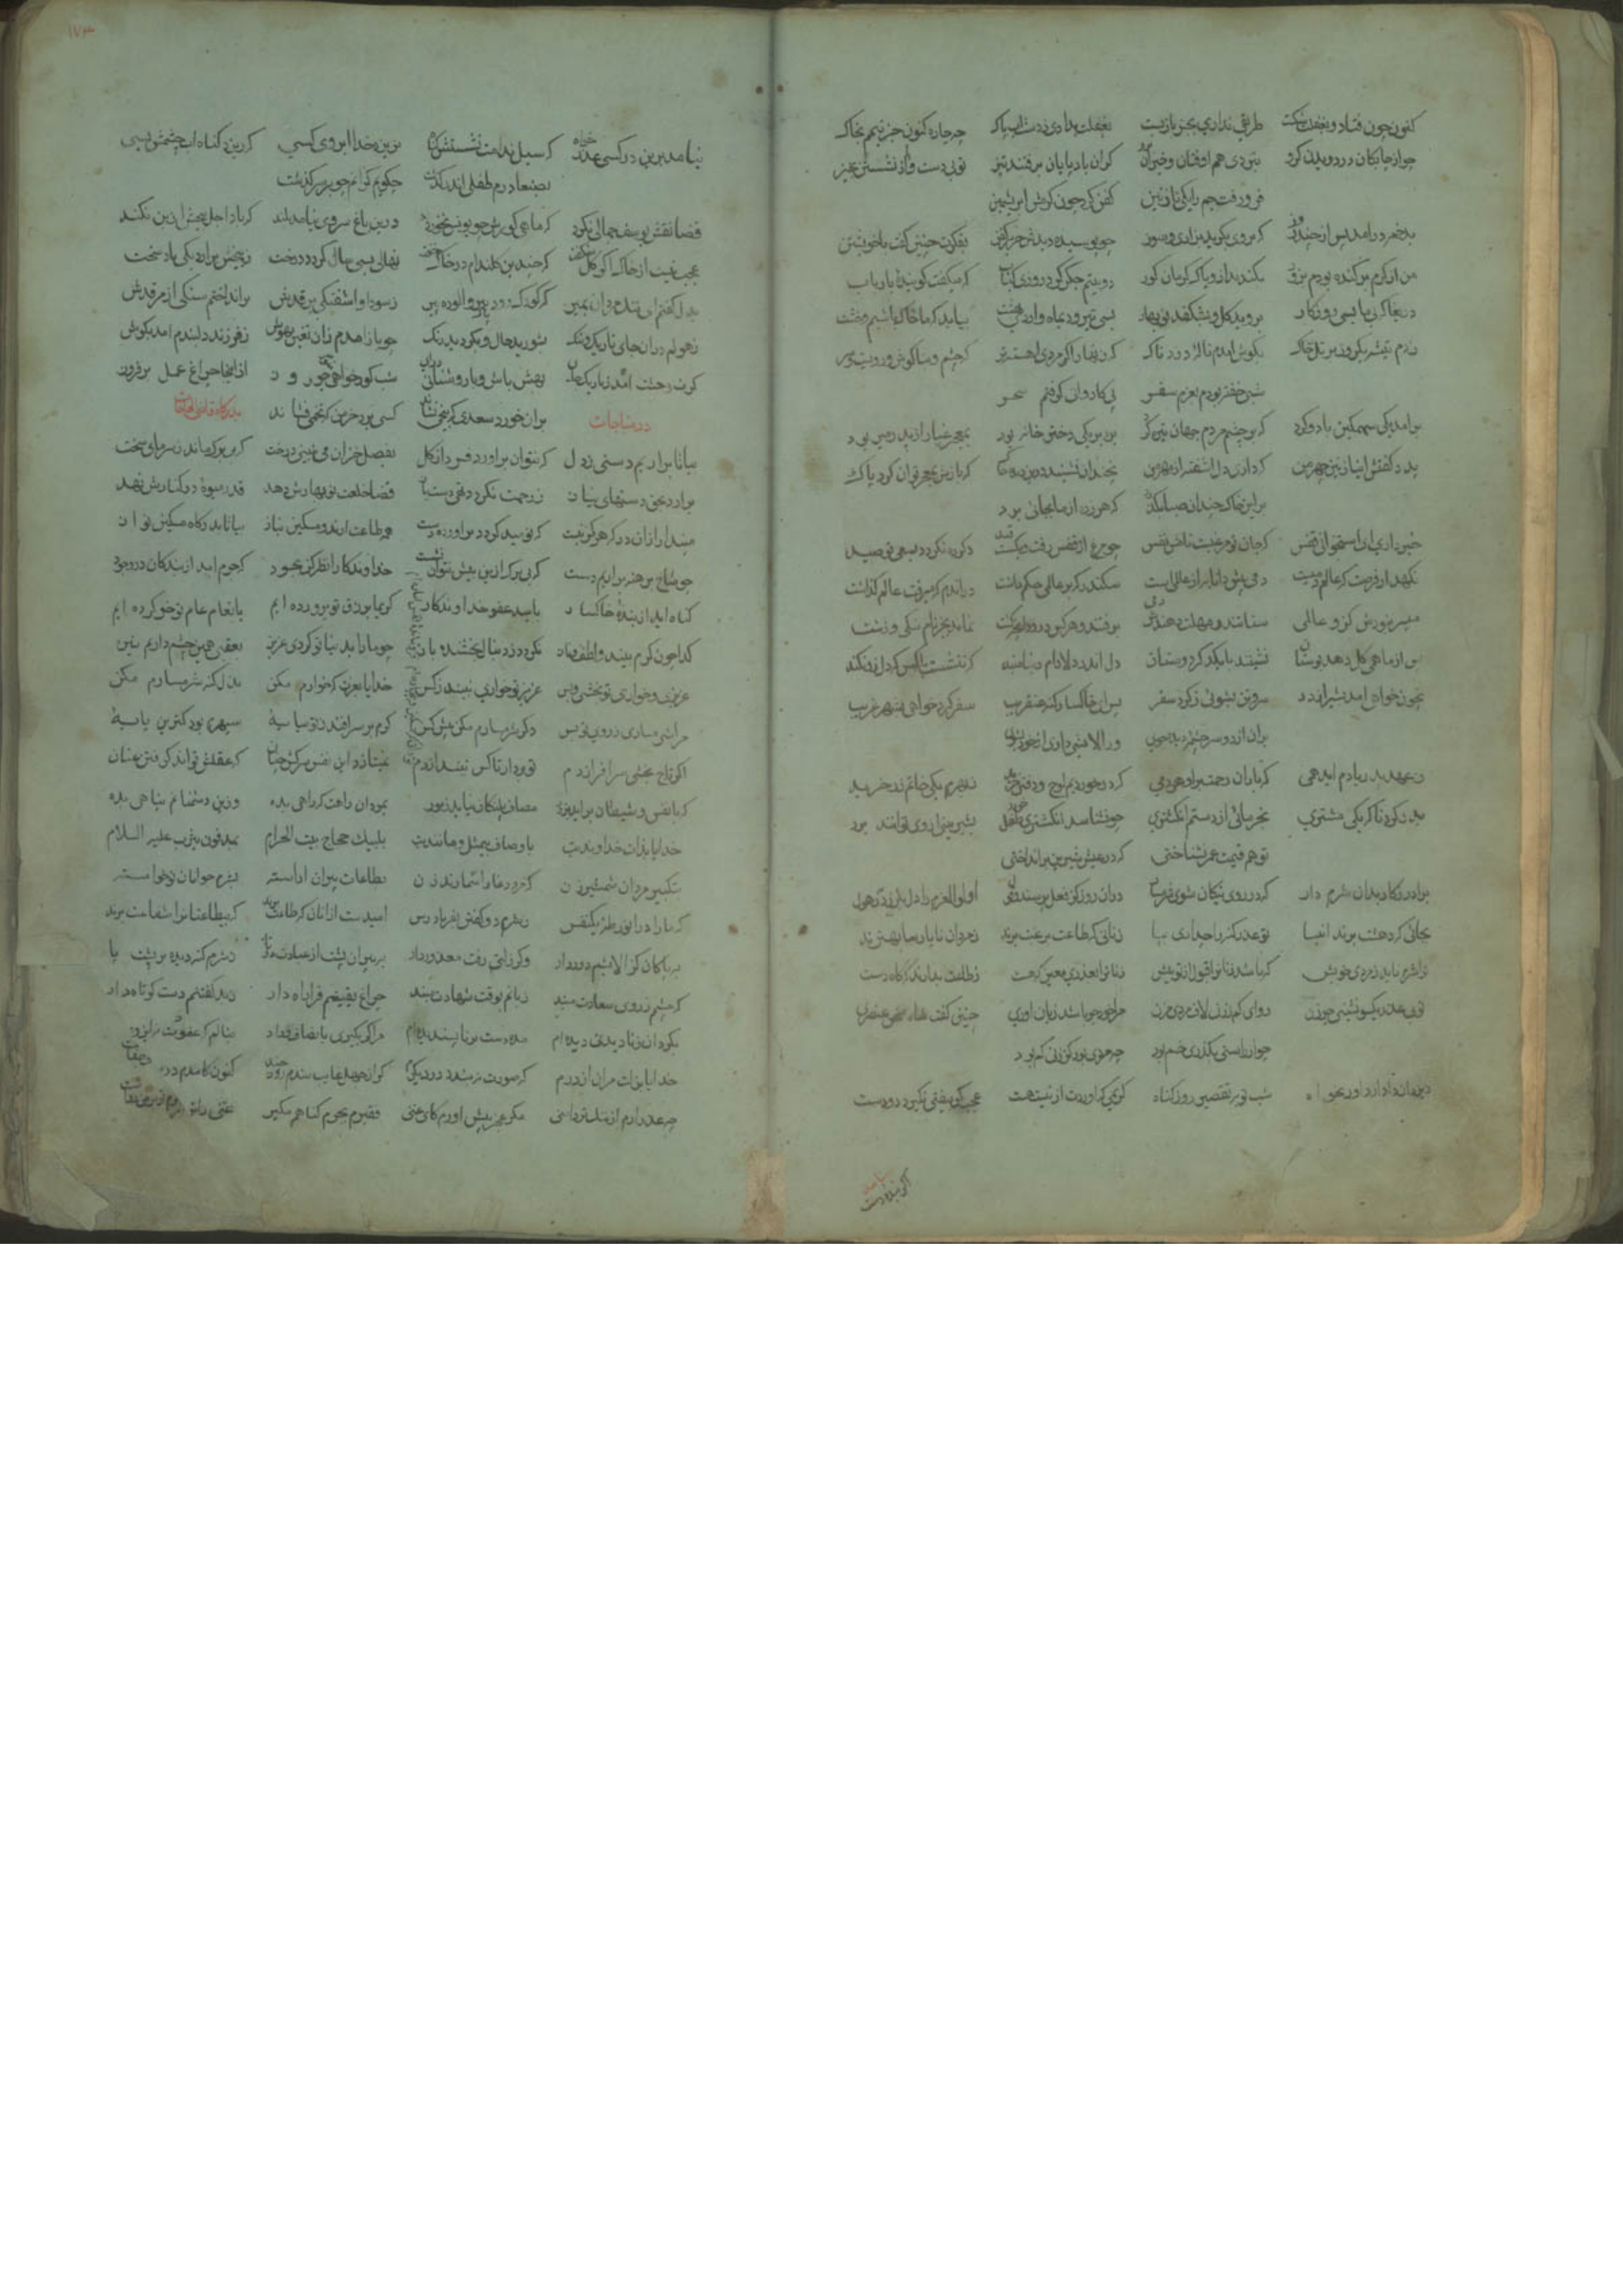 کنون چون فتاد وبغفلت شکست طریقی نداری بجز باز بست بغفلت بدادی ز دست آب پاک چه چاره کنون جز تیمم بخاک
چو از چابکان در دویدن کرد نبردی هم افتان و خیزان کران باد پایان برفتند تیز تو بی دست و از نشستن خیز
فرو رفت جم را یکی نازنین کفن کرد چون کرمش ابریشمین
بدخمه درامد پس از چند روز که بروی بکرید بزاری و سوز چو پوسیده دیدش حریر کفن بفکرت چنین کفت با خویشتن
من از کرم برکنده بودم بزور بکند باز و پاک کرمان کور دو بیتم جکر کرد روزی کباب که میکفت کوینده با رباب
دریغا که بی ما بسی روزکار بروید کل و بشکفد نوبهار بسی تیر و دی ماه و اردیبهشت بیاید که ما خاک باشیم و خشت
زدم تیشه یکروز بر تل خاک بکوش امدم ناله دردناک که زنهار اکر مردی اهسته تر که چشم و بناکوش و رویست و سر
شبی خفته بودم بعزم سفر پی کاروانی کرفتم سحر
برامد یکی سهمکین باد و کرد که بر چشم مردم جهان تیره کرد بره بر یکی دختر خانه بود بمعجر غبار از پدر می زدود
پدر کفتش ای نازنین چهر من که داری دل اشفته از مهر من نچندان نشیند درین دیده خاک که بازش بمعجر توان کرد پاک
برین خاک چندان صبا بکذرد که هر ذره از ما بجائی برد
خبر داری ای استخوانی قفس که جان تو مرغیست نامش نفس چو مرغ از قفس رفت و بکسست قید دکر ره نکردد بسعی تو صید
نکهدار فرصت که عالم دمیست دمی پیش دانا به از عالمی است سکندر که بر عالمی حکم داشت دران دم که میرفت عالم کذاشت
میسر نبودش کزو عالمی ستانند و مهلت دهندش دمی برفتند و هر کس درود انچه کشت نماند بجز نام نیکی و زشت
پس از ما همی کل دهد بوستان نشینند با یکدکر دوستان دل اندر دلارام دنیا مبند که ننشست با کس که دل برنکند
بران از دو سرچشمه دیده جوی ور الایشی داری از خود بشوی
ز عهد پدر یادم اید همی که باران رحمت برو هر دمی که در خوردیم لوح و دفتر خرید ز بهرم یکی خاتم زر خرید
بدر کرد ناکه یکی مشتری بخرمائی از دستم انکشتری چو نشناسد انکشتری طفل خرد بشیرینی از وی توانند برد
تو هم قیمت عمر نشناختی که در عیش شیرین برانداختی
برادر ز کار بدان شرم دار که در روی نیکان شوی شرمسار دران روز کز فعل پرسند و قول اولوالعزم را دل بلرزد ز هول
بجائی که دهشت برند انبیا تو عذر کنه را چه داری بیا زنانی که طاعت برغبت برند ز مردان ناپارسا بهترند
ترا شرم ناید ز مردی خویش که باشد زنانرا قبول از تو بیش زنانرا بعذری معین که هست ز طاعت بدارند که کاه دست
تو بی عذر یکسو نشینی چو زن رو ای کم ز زن لاف مردی مزن مرا خود چه باشد زبان اوری چنین کفت شاه سخن عنصری
چو از راستی بکذری خم بود چه مردی بود کز زنی کم بود
شب توبه تقصیر روز کناه کریمی که اوردت از نیست هست عجب کر بیفتی نکیردت دست
اکر بنده دست
نیامد برین در کسی عذر خواه که سیل ندامت نشستش کناه نریزد خدا ابروی کسی که ریزد کناه اب چشمش بسی
بصنعا درم طفلی اندر کذشت چکویم کزانم چه بر سر کذشت
قضا نقش یوسف جمالی نکرد که ماهی کورش چو یونس نخورد درین باغ سروی نیامد بلند که باد اجل بیخش از بن نکند
عجب نیست از خاک اکر کل شکفت که چندین کلندام در خاک خفت نهالی بسی سال کردد درخت ز بیخش برارد یکی باد سخت
بدل کفتم ای ننک مردان بمیر که کودک رود پاک و الوده پیر ز سودا و اشفتکی بر قدش برانداختم سنکی از مرقدش
ز هولم دران جای تاریک و تنک بشورید حال و بکردید رنک چو باز امدم زان تغیر بهوش ز فرزند دلبندم امد بکوش
کرت وحشت امد ز تاریک جای بهش باش و با روشنائی درای شب کور خواهی منور چو روز از اینجا چراغ عمل برفروز
در مناجات بران خورد سعدی که بیخی نشاند کسی برد خرمن که تخمی فشاند بدرکاه قاضی الحاجات
بیا تا براریم دستی ز دل که نتوان براورد فردا ز کل بفصل خزان می نبینی درخت که بی برک ماند ز سرمای سخت
برارد تهی دستهای نیاز ز رحمت نکردد تهی دست باز قضا خلعت نوبهارش دهد قدر میوه در کنارش نهد
مپندار ازان در که هرکز نبست که نومید کردد براورده دست همه طاعت ارند و مسکین نیاز بیا تا بدرکاه مسکین نواز
چو شاخ برهنه براریم دست که بی برک ازین بیش نتوان نشست خداوندکارا نظر کن بجود که جرم امد از بندکان در وجود
کناه اید از بنده خاکسار بامید عفو خداوندکار کریما برزق تو پرورده ایم بانعام عام تو خو کرده ایم
کدا چون کرم بیند و لطف و ناز نکردد ز دنبال بخشنده باز چو ما را بدنیا تو کردی عزیز بعقبی همین چشم داریم نیز
عزیزی و خواری تو بخشی و بس عزیز تو خواری نبیند ز کس خدایا بعزت که خوارم مکن بذل کنه شرمسارم مکن
دکر شرمسارم مکن پیش کس کرم بر سر افتد ز تو سایه سپهری بود کمترین پایه
اکر تاج بخشی سر افرازدم تو بردار تا کس نیندازدم نمیتازد این نفس سرکش چنان که عقلش تواند کرفتن عنان
که با نفس و شیطان براید بزور مصاف پلنکان نیاید ز مور بمردان راهت که راهی بده وزین دشمنانم پناهی بده
خدایا بذات خداوندیت باوصاف بیمثل و مانندیت بلبیک حجاج بیت الحرام بمدفون یثرب علیه السلام
بتکبیر مردان شمشیر زن که مرد وغا را شمارند زن بطاعات پیران اراسته بصدق جوانان نوخاسته
که ما را دران ورطه یکنفس ز شرم دو کفتن بفریاد رس امیدست از انان که طاعت برند که بیطاعتانرا شفاعت برند
بپاکان کز الایشم دور دار وکر زلتی رفت معذور دار بپیران پشت از عبادت دوتا ز شرم کنه دیده بر پشت پا
که چشمم ز روی سعادت مبند زبانم بوقت شهادت مبند چراغ یقینم فرا راه دار ز بد کفتنم دست کوتاه دار
بکردان ز نادیدنی دیده ام مده دست بر ناپسندیده ام مرا کر بکیری بانصاف و داد بنالم که عفوت
خدایا بذلت مران از درم که صورت نبندد دری دیکرم کر از جهل غایب شدم روز چند کنون کامدم در
چه عذر ارم از ننک تردامنی مکر عجز پیش اورم کای غنی فقیرم بجرم کناهم مکیر